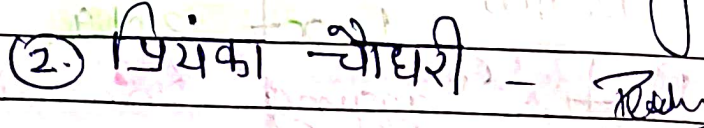 2. प्रियंका चौधरी -